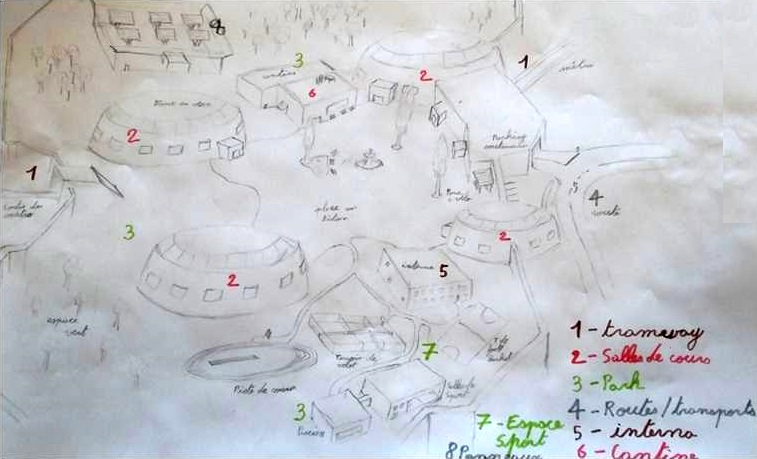 8
3
cantine
6
2
1
métro
2
Parking
1
4
route
place en
3
2
2
internat
5
espace
vert
7
4
Terrain de
Piste de course
Salle de
Sport
3
Piscine
1 - tramevay
2 - Salles de cours
3 - Park
4 - Routes/transports
5 - interna
6 - Cantine
7 - Espace
Sport
8 Panneaux